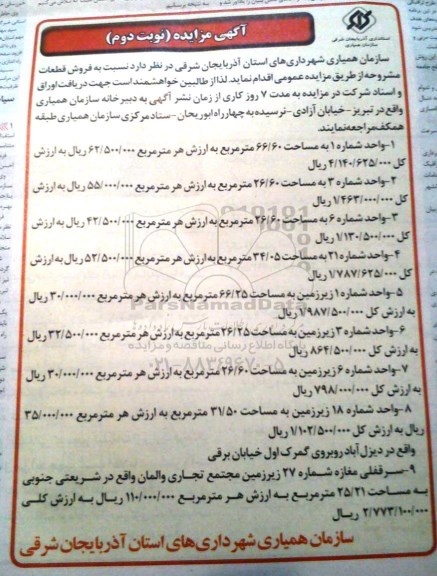 آگهی مزایده (نوبت دوم)
استانداری آذربایجان شرقی
سازمان همیاری
سازمان همیاری شهرداری‌های استان آذربایجان شرقی در نظر دارد نسبت به فروش قطعات
مشروحه از طریق مزایده عمومی اقدام نماید. لذا از طالبین خواهشمند است جهت دریافت اوراق
و اسناد شرکت در مزایده به مدت ۷ روز کاری از زمان نشر آگهی به دبیرخانه سازمان همیاری
واقع در تبریز - خیابان آزادی - نرسیده به چهارراه ابوریحان - ستاد مرکزی سازمان همیاری طبقه
همکف مراجعه نمایند.
۱- واحد شماره ۱ به مساحت ۶۶/۶۰ مترمربع به ارزش هر مترمربع ۶۲/۵۰۰/۰۰۰ ریال به ارزش
کل ۴/۱۴۰/۶۲۵/۰۰۰ ریال
۲- واحد شماره ۳ به مساحت ۲۶/۶۰ مترمربع به ارزش هر مترمربع ۵۵/۰۰۰/۰۰۰ ریال به ارزش
کل ۱/۴۶۳/۰۰۰/۰۰۰ ریال
۳- واحد شماره ۶ به مساحت ۲۶/۶۰ مترمربع به ارزش هر مترمربع ۴۲/۵۰۰/۰۰۰ ریال به ارزش
کل ۱/۱۳۰/۵۰۰/۰۰۰ ریال
۴- واحد شماره ۲۱ به مساحت ۳۴/۰۵ مترمربع به ارزش هر مترمربع ۵۲/۵۰۰/۰۰۰ ریال به ارزش
کل ۱/۷۸۷/۶۲۵/۰۰۰ ریال
۵- واحد شماره ۱ زیرزمین به مساحت ۶۶/۲۵ مترمربع به ارزش هر مترمربع ۳۰/۰۰۰/۰۰۰ ریال
به ارزش کل ۱/۹۸۷/۵۰۰/۰۰۰ ریال
ParsNamadData
۶- واحد شماره ۳ زیرزمین به مساحت ۲۶/۲۵ مترمربع به ارزش هر مترمربع ۳۲/۵۰۰/۰۰۰ ریال
به ارزش کل ۸۶۴/۵۰۰/۰۰۰ ریال
پایگاه اطلاع رسانی مناقصه و مزایده
۷- واحد شماره ۶ زیرزمین به مساحت ۲۶/۶۰ مترمربع به ارزش هر مترمربع ۳۰/۰۰۰/۰۰۰ ریال
۰۲۱-۸۸۳۴۹۶۷۰-۵
به ارزش کل ۷۹۸/۰۰۰/۰۰۰ ریال
۸- واحد شماره ۱۸ زیرزمین به مساحت ۳۱/۵۰ مترمربع به ارزش هر مترمربع ۳۵/۰۰۰/۰۰۰
ریال به ارزش کل ۱/۱۰۲/۵۰۰/۰۰۰ ریال
واقع در دیزل آباد روبروی گمرک اول خیابان برقی
۹- سرقفلی مغازه شماره ۲۷ زیرزمین مجتمع تجاری والمان واقع در شریعتی جنوبی
به مساحت ۲۵/۲۱ مترمربع به ارزش هر مترمربع ۱۱۰/۰۰۰/۰۰۰ ریال به ارزش کلی
۲/۷۷۳/۱۰۰/۰۰۰ ریال
سازمان همیاری شهرداری‌های استان آذربایجان شرقی